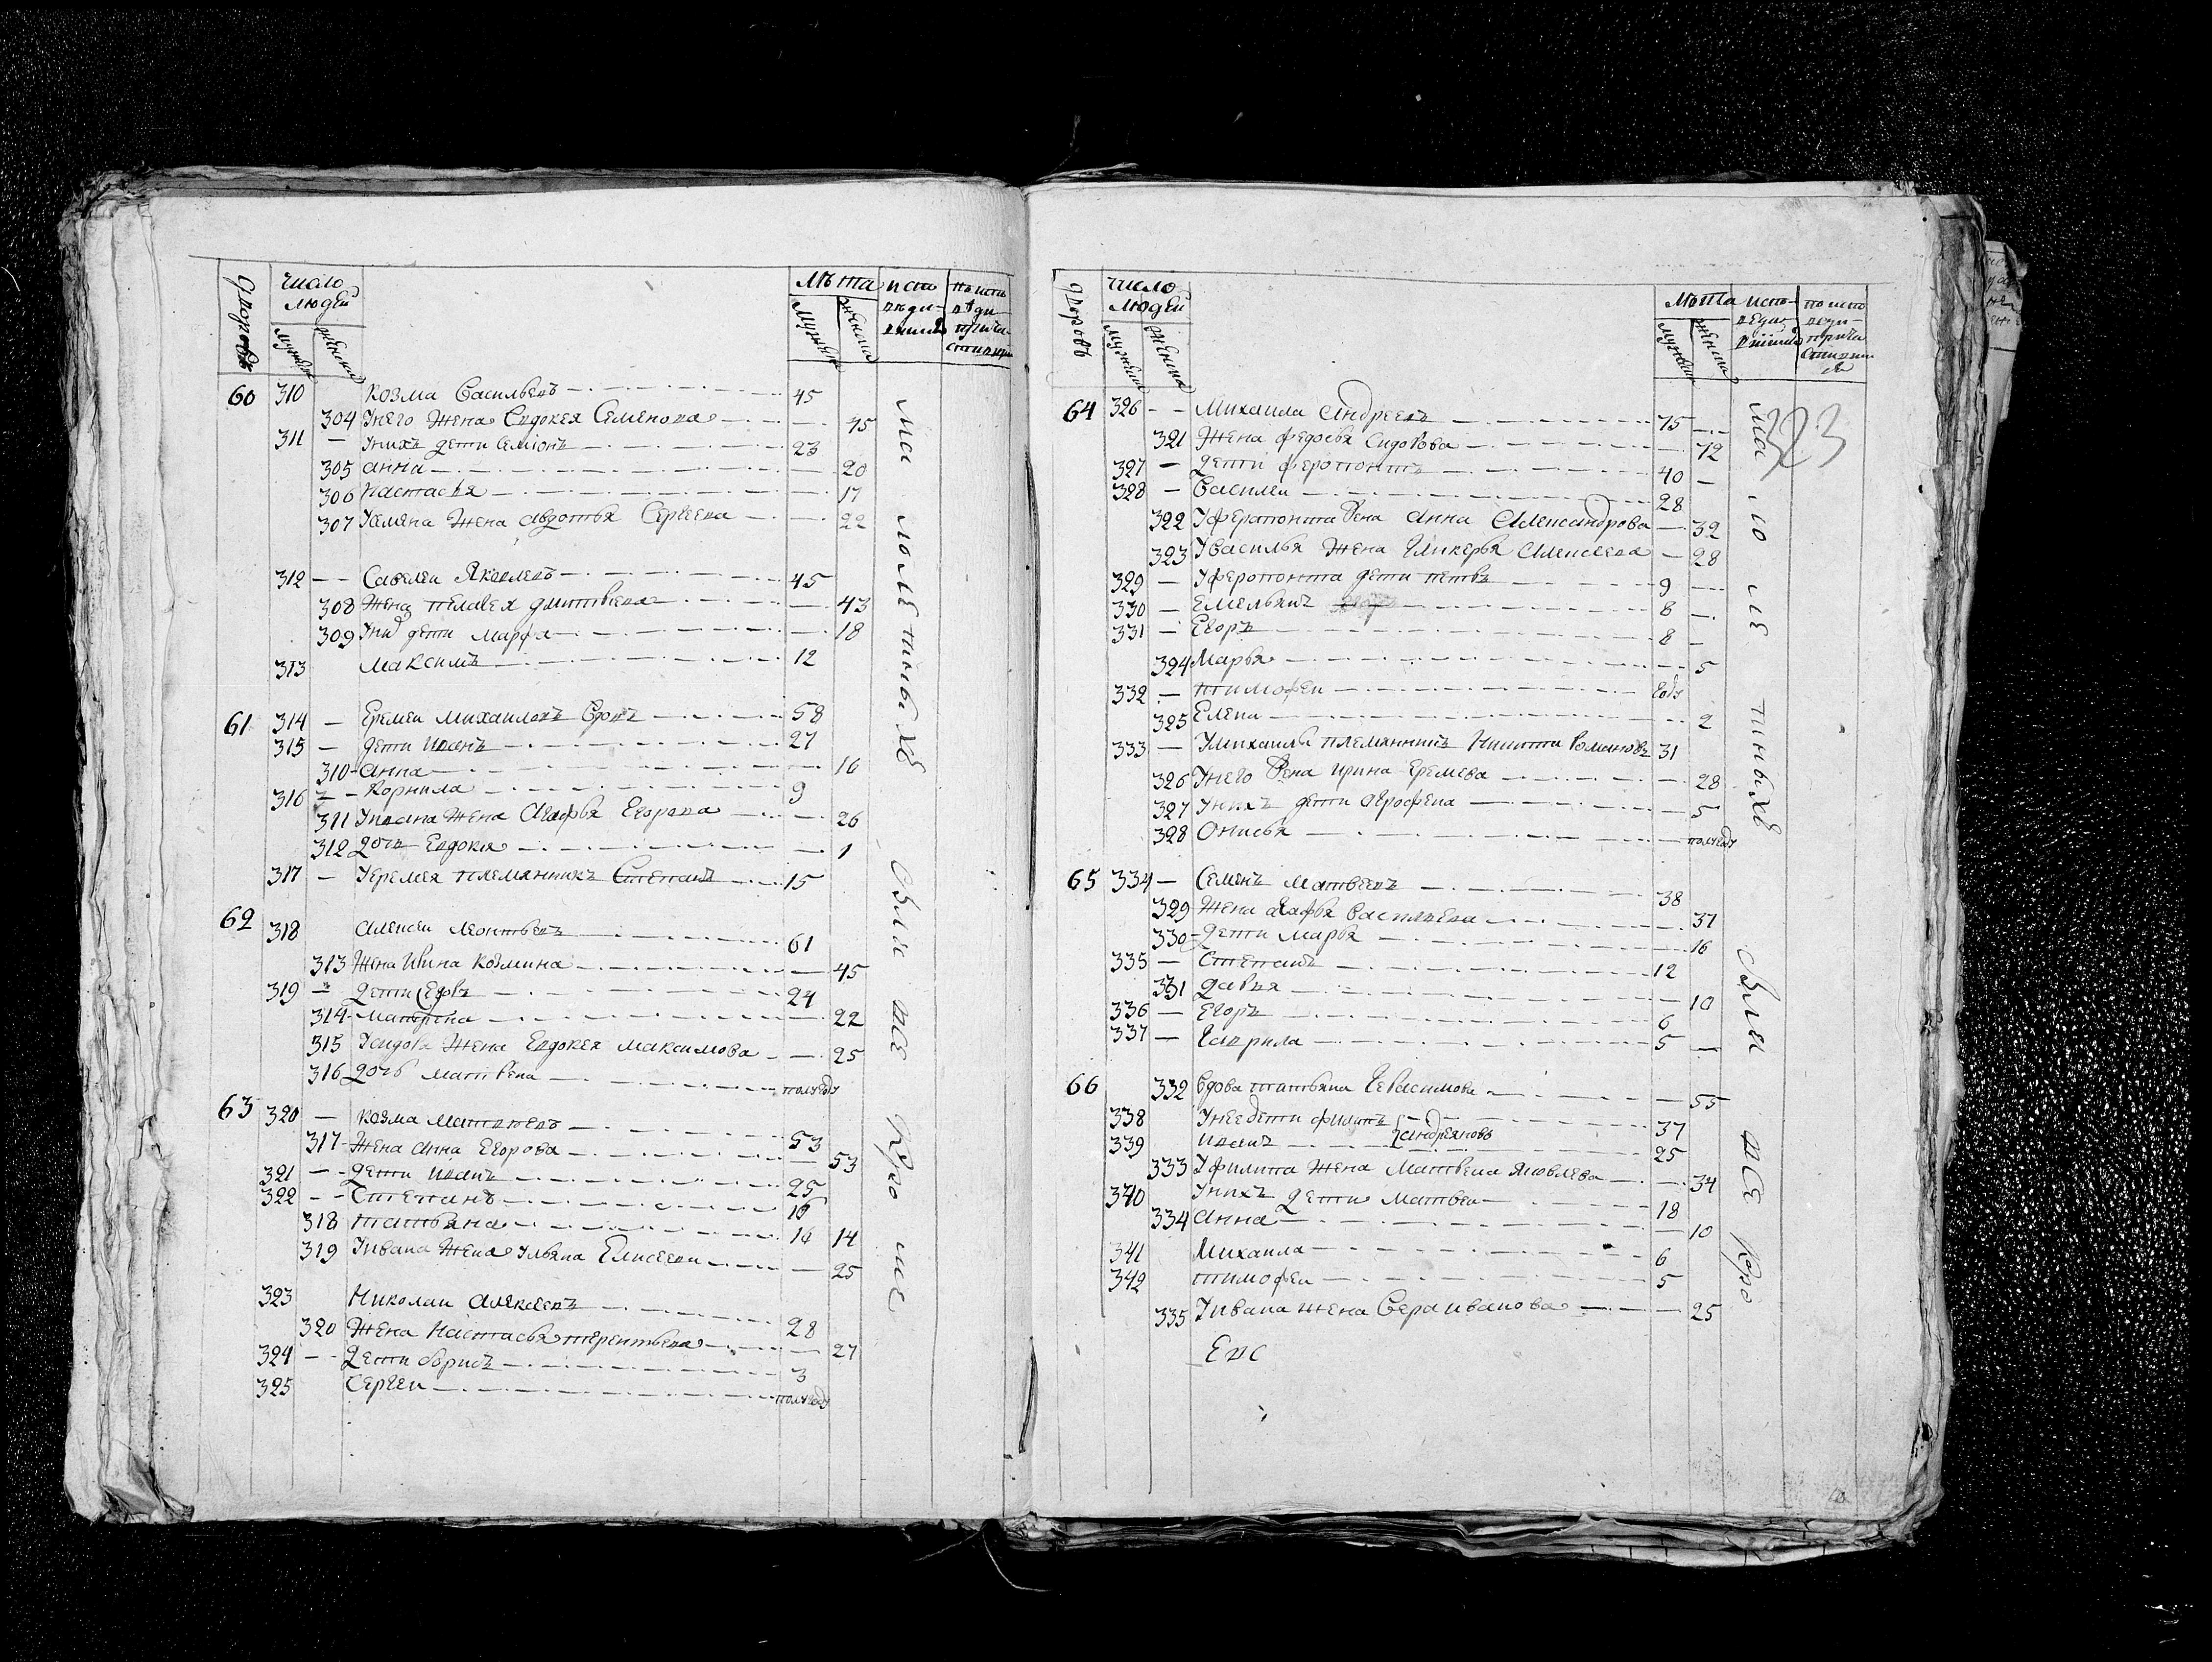 дворовъ число людей мужеска женска лѣта мужеска женска испо
60 310 козма Васильевъ 45
304 Унего жена Евдокея Семенова 45
311 Унихъ дети Семіонъ 23
305 анна 20
306 Настасья 17
307 Усемена жена авдотья Сергеева 22
312 Савелеи Яковлевъ 45
308 жена пелагея дмитвева 43
309 Унихъ дети марфа 18
313 максимъ 12
61 314 Еремеи михаиловъ Вдовъ 58
315 дети иванъ 27
310 анна 16
316 Корнила 9
311 Уивана жена Агафья Егорова 26
312 дочь Евдокия 1
317 Уеремея племянникъ Степанъ 15
62 318 алексеи леонтьевъ 61
313 жена Ирина козмина 45
319 дети 24
314 матрена 22
315 жена Евдокея максимова 25
316 дочь матрена полугоду
63 320 козма матвеевъ 53
317 жена анна Егорова 53
321 дети иванъ 25
322 Степанъ
318 татьяна 16 14
319 Уивана жена Ульяна Елисеева 25
323 Николаи алексеевъ 28
320 жена настасья терентьева 27
324 дети борисъ 3
325 Сергеи полугоду
малолетныхъ
дворовъ число людей мужеска женска лѣта мужеска женска испо
323
64 326 Михаила андреевъ 75
321 жена федосья сидорова 72
327 дети ферапонтъ 40
328 Василеи 28
322 Уферапонта жена анна Александрова 32
323 Увасилья жена гликерья алексеева 28
329 Уферапонта дети петръ 9
330 Емельянъ 8
331 Егоръ 8
324 марья 5
332 тимофеи году
325 Елена 2
333 Умихаилы племянникъ Никита Романовъ 31
326 Унего жена ирина Еремеева 28
327 Унихъ дети аграфена 5
328 Онисья полугоду
65 334 Семенъ матвеевъ 38
329 жена агафья васильева 37
330 дети марья 16
335 Степанъ 12
331 дарья 10
336 Егоръ 6
337 гаврила 5
66 332 Вдова татьяна герасимова 55
338 Унее дети филипъ 37
андреяновъ
339 иванъ 25
333 Уфилипа жена матрена яковлева 34
340 Унихъ дети матвеи 18
334 анна 10
341 михаила 6
342 тимофеи 5
335 Уивана жена Вера иванова 25